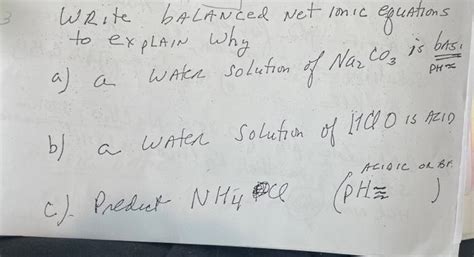 3
WRite bALANced Net ionic equations
to explain why
a) a WAteR solution of Na2CO3 is bAsi
pH≈
b) a WAteR Solution of HClO is ACID
ACIDIC OR BA
c) Predict NH4Cl (pH≈ )